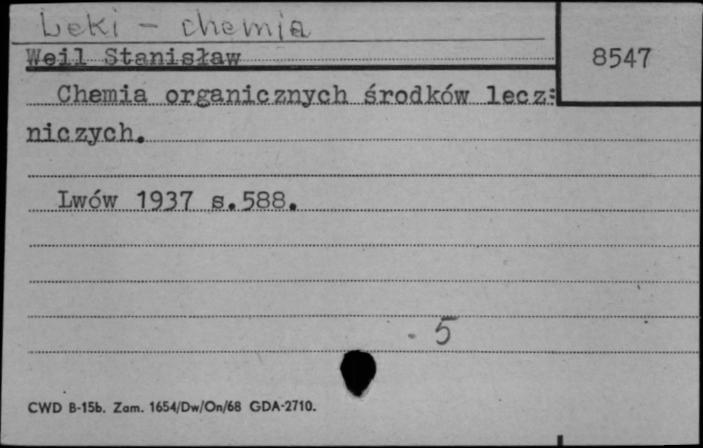 Leki - chemia
Weil Stanisław
8547
Chemia organicznych środków lecz=
niczych.
Lwów 1937 s.588.
5
CWD B-15b. Zam. 1654/Dw/On/68 GDA-2710.